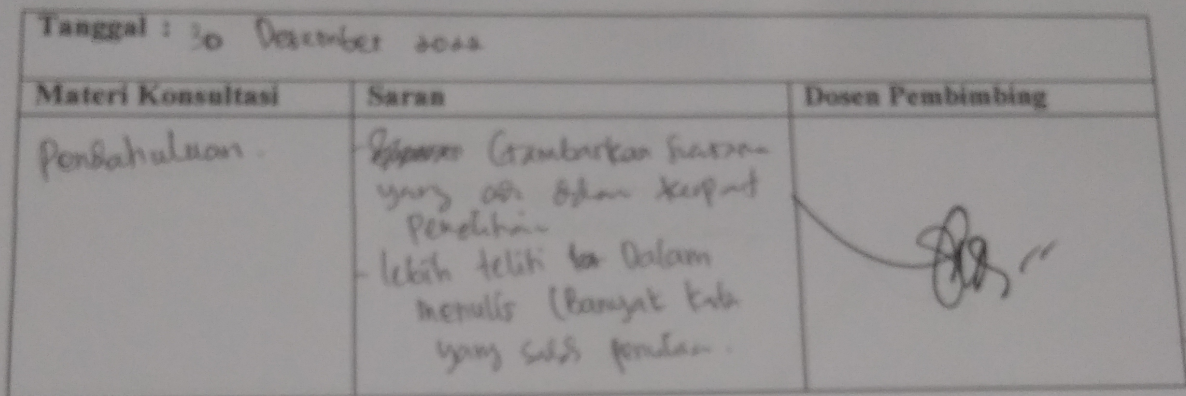 Tanggal : 30 Desember 2022
Materi Konsultasi Saran Dosen Pembimbing
Pendahuluan.
- Gambarkan
yang tempat
Penelitian
- lebih teliti Dalam
menulis (Banyak kata
yang salah penulisan.